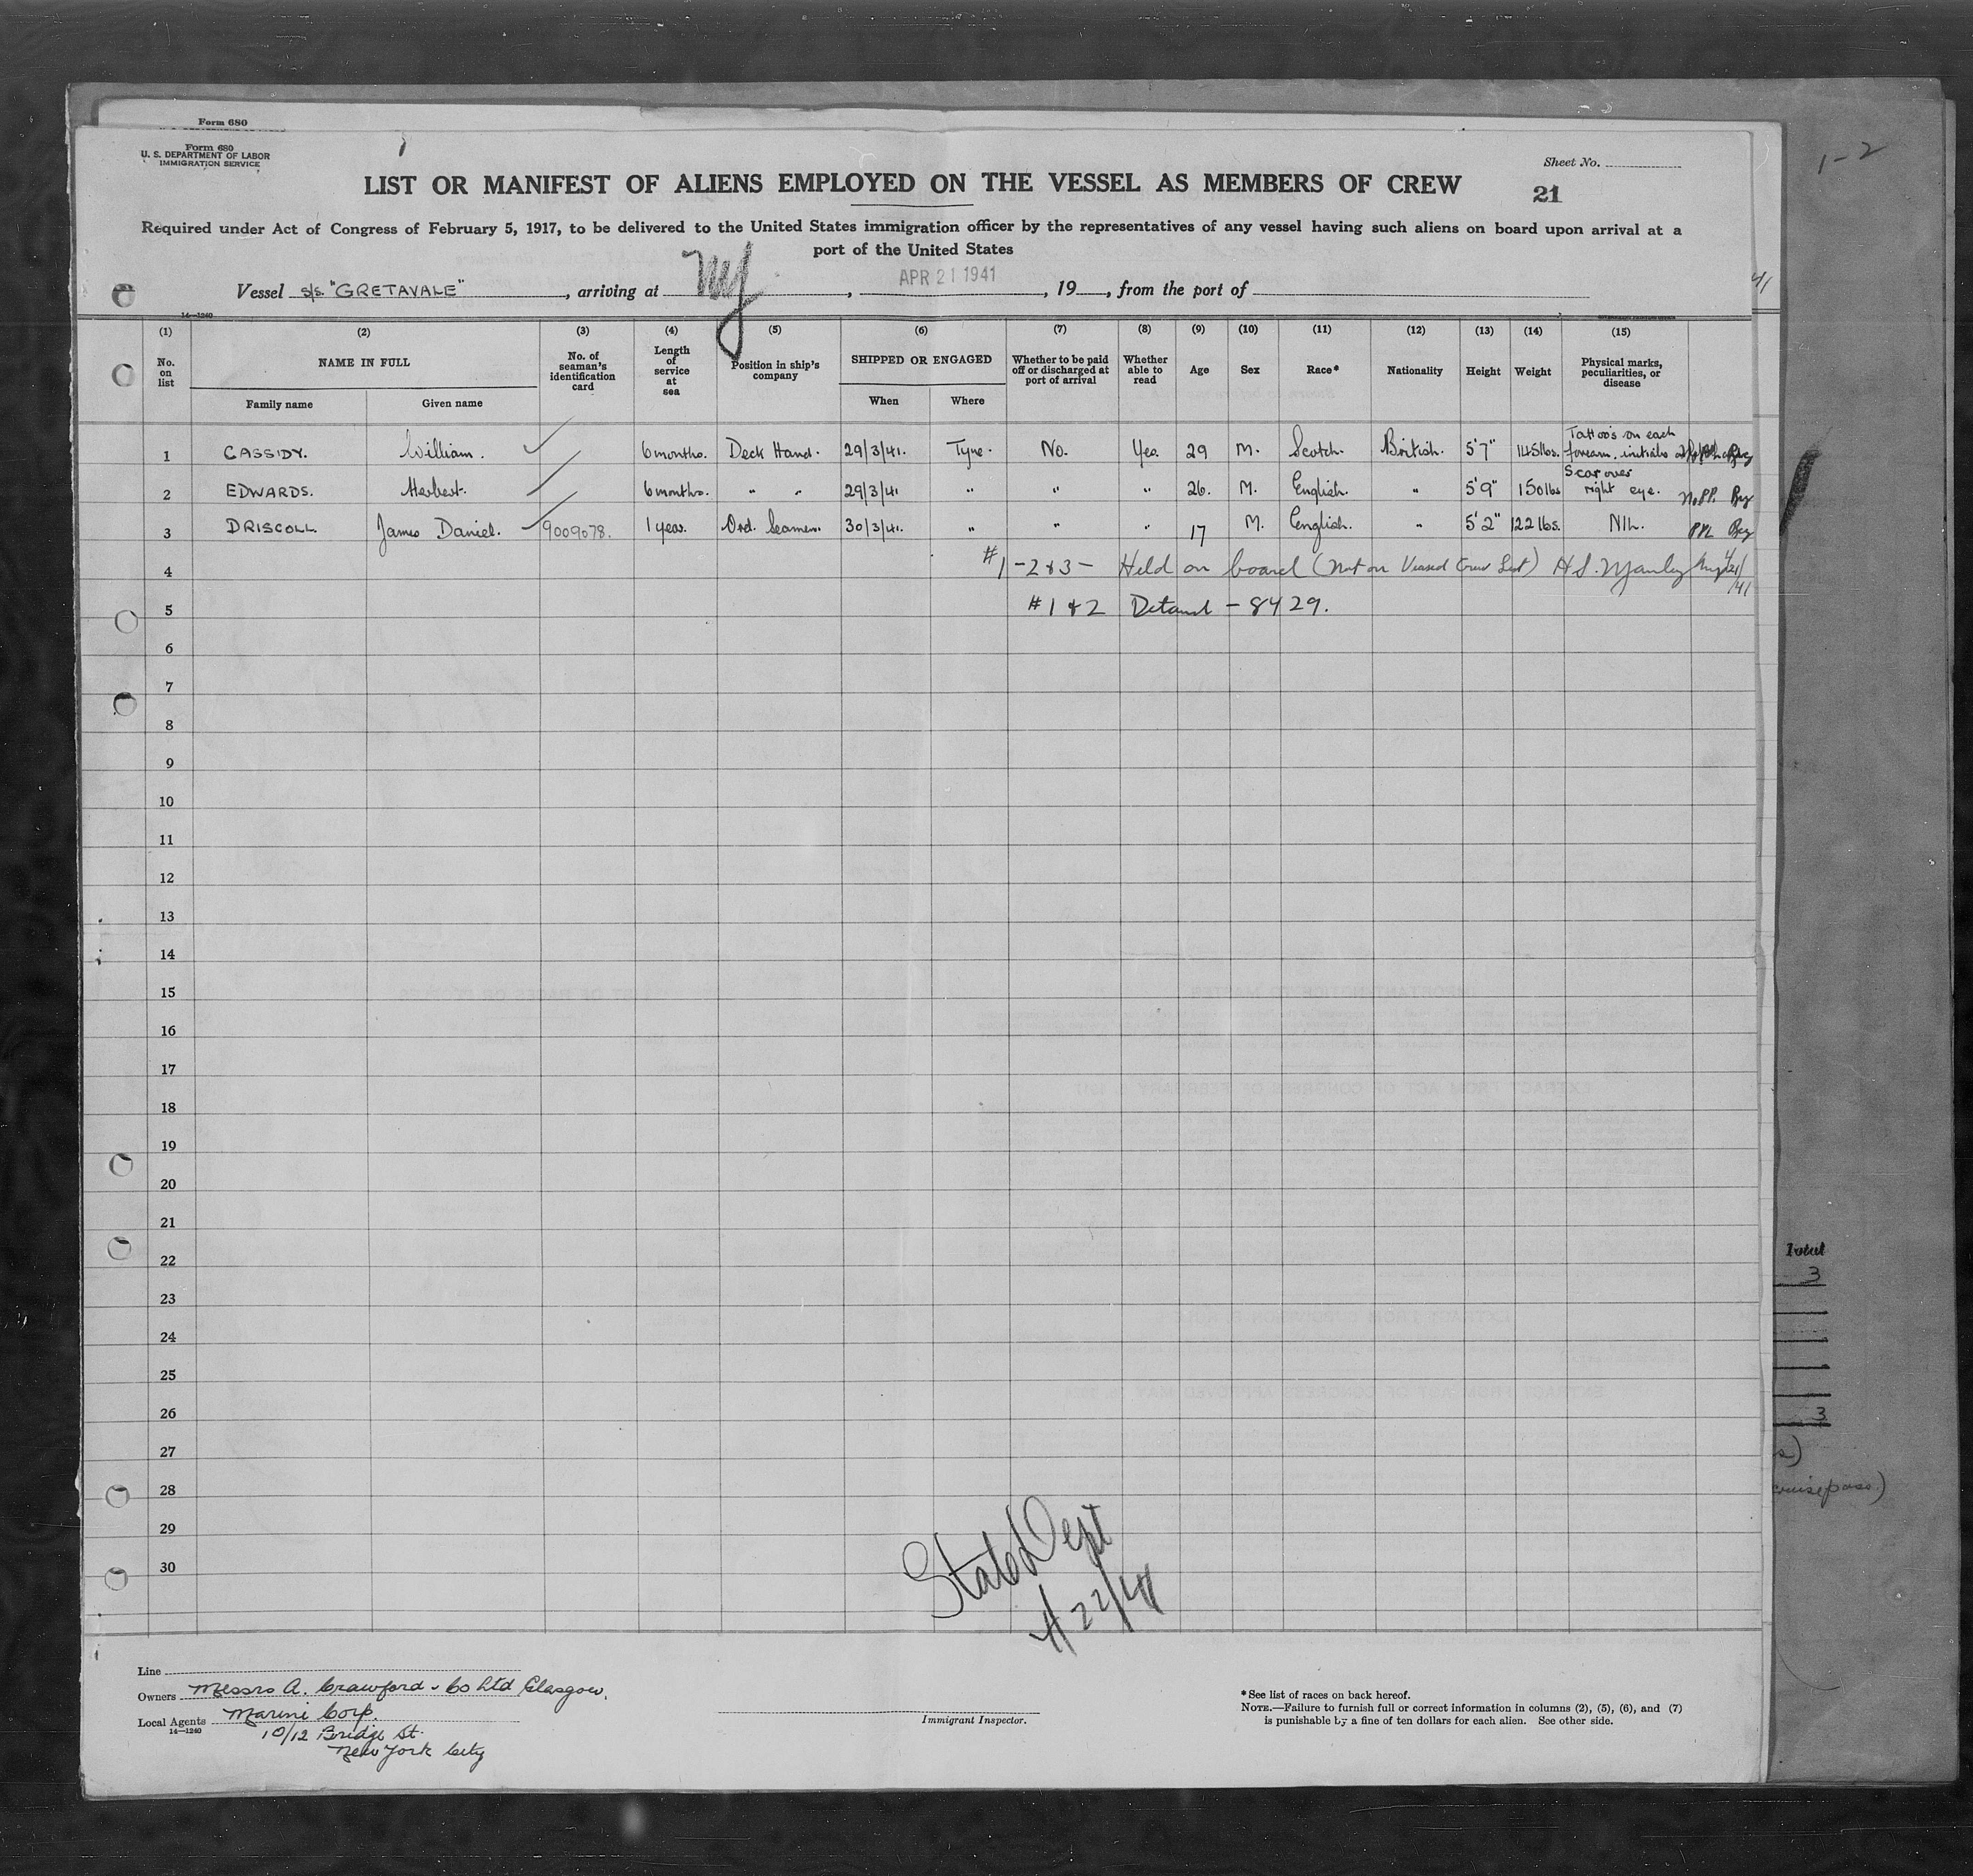 Form 680
Form 680
U. S. DEPARTMENT OF LABOR
IMMIGRATION SERVICE
1-2
Sheet No.
21
LIST OR MANIFEST OF ALIENS EMPLOYED ON THE VESSEL AS MEMBERS OF CREW
Required under Act of Congress of February 5, 1917, to be delivered to the United States immigration officer by the representatives of any vessel having such aliens on board upon arrival at a
port of the United States
Vessel s/s. "GRETAVALE", arriving at NY, APR 21 1941, 19, from the port of
14—1240
(1) (2) (3) (4) (5) (6) (7) (8) (9) (10) (11) (12) (13) (14) (15)
No. on list NAME IN FULL No. of seaman's identification card Length of service at sea Position in ship's company SHIPPED OR ENGAGED Whether to be paid off or discharged at port of arrival Whether able to read Age Sex Race* Nationality Height Weight Physical marks, peculiarities, or disease
Family name Given name When Where
1 CASSIDY. William. 6 months. Deck Hand. 29/3/41. Tyne. No. Yes. 29 M. Scotch. British. 5'7" 145lbs. Tattoo's on each forearm. initials
2 EDWARDS. Herbert. 6 months. " " 29/3/41. " " " 26. M. English. " 5'9" 150lbs Scar over right eye. No PP.
3 DRISCOLL James Daniel. 9009078. 1 year. Ord. Seaman. 30/3/41. " " " 17 M. English. " 5'2" 122 lbs. NIL.
4 #1-2&3- Held on board (Not on Visaed Crew List) H S. Manley 4/21/41
5 #1 & 2 Detained - 8429.
6
7
8
9
10
11
12
13
14
15
16
17
18
19
20
21
22
23
24
25
26
27
28
29
30
Total
3
3
State Dept
4/22/41
Line
Owners Messrs A. Crawford & Co Ltd Glasgow.
Local Agents Marine Corp.
14—1240
10/12 Bridge St.
New York City
Immigrant Inspector.
*See list of races on back hereof.
NOTE.—Failure to furnish full or correct information in columns (2), (5), (6), and (7)
is punishable by a fine of ten dollars for each alien. See other side.